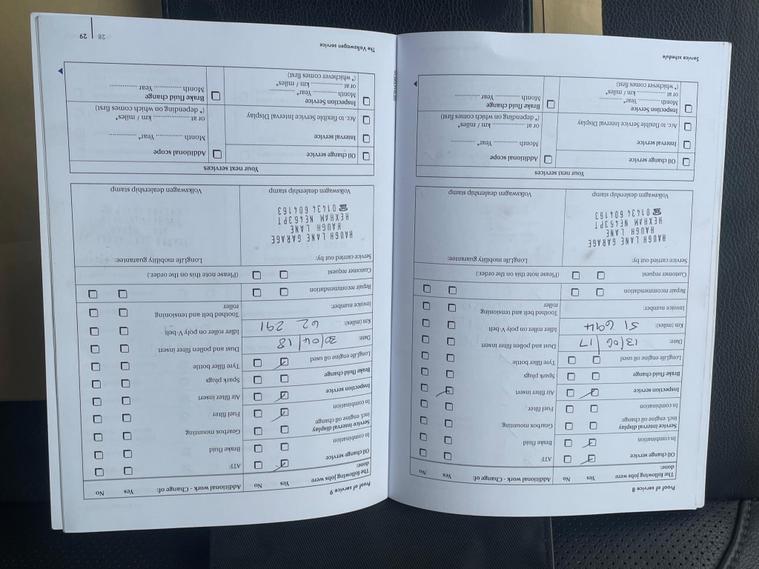 Proof of service 8
The following jobs were done: Yes No
Oil change service
In combination
Service interval display incl. engine oil change
In combination
Inspection service
Brake fluid change
LongLife engine oil used
Date: 13/06/17
Km (miles): 51 694
Invoice number:
Repair recommendation
Customer request
Service carried out by:
HAUGH LANE GARAGE
HAUGH LANE
HEXHAM NE463PT
☎ 01434 604163
Volkswagen dealership stamp
Additional work - Change of: Yes No
ATF
Brake fluid
Gearbox mounting
Fuel filter
Air filter insert
Spark plugs
Tyre filler bottle
Dust and pollen filter insert
Idler roller on poly V-belt
Toothed belt and tensioning roller
(Please note this on the order.)
LongLife mobility guarantee:
Volkswagen dealership stamp
Your next services
Oil change service
Interval service
Acc. to flexible Service Interval Display
Inspection Service
Month ........ Year*........
or at ........ km / miles*
(* whichever comes first)
Additional scope
Month ........ Year* ........
or at ........ km / miles*
(* depending on which comes first)
Brake fluid change
Month ........ Year ........
Service schedule
Proof of service 9
The following jobs were done: Yes No
Oil change service
In combination
Service interval display incl. engine oil change
In combination
Inspection service
Brake fluid change
LongLife engine oil used
Date: 30/04/18
Km (miles): 62 291
Invoice number:
Repair recommendation
Customer request
Service carried out by:
HAUGH LANE GARAGE
HAUGH LANE
HEXHAM NE463PT
☎ 01434 604163
Volkswagen dealership stamp
Additional work - Change of: Yes No
ATF
Brake fluid
Gearbox mounting
Fuel filter
Air filter insert
Spark plugs
Tyre filler bottle
Dust and pollen filter insert
Idler roller on poly V-belt
Toothed belt and tensioning roller
(Please note this on the order.)
LongLife mobility guarantee:
Volkswagen dealership stamp
Your next services
Oil change service
Interval service
Acc. to flexible Service Interval Display
Inspection Service
Month ........ Year*........
or at ........ km / miles*
(* whichever comes first)
Additional scope
Month ........ Year* ........
or at ........ km / miles*
(* depending on which comes first)
Brake fluid change
Month ........ Year ........
The Volkswagen service
28 | 29